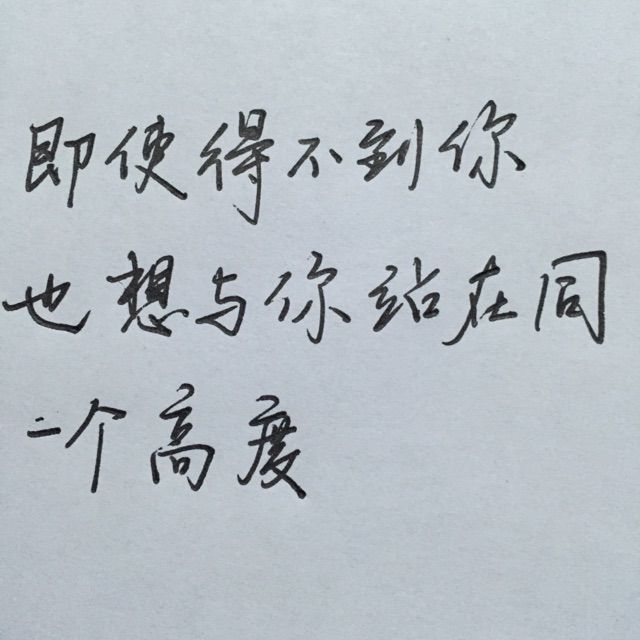 即使得不到你
也想与你站在同
一个高度